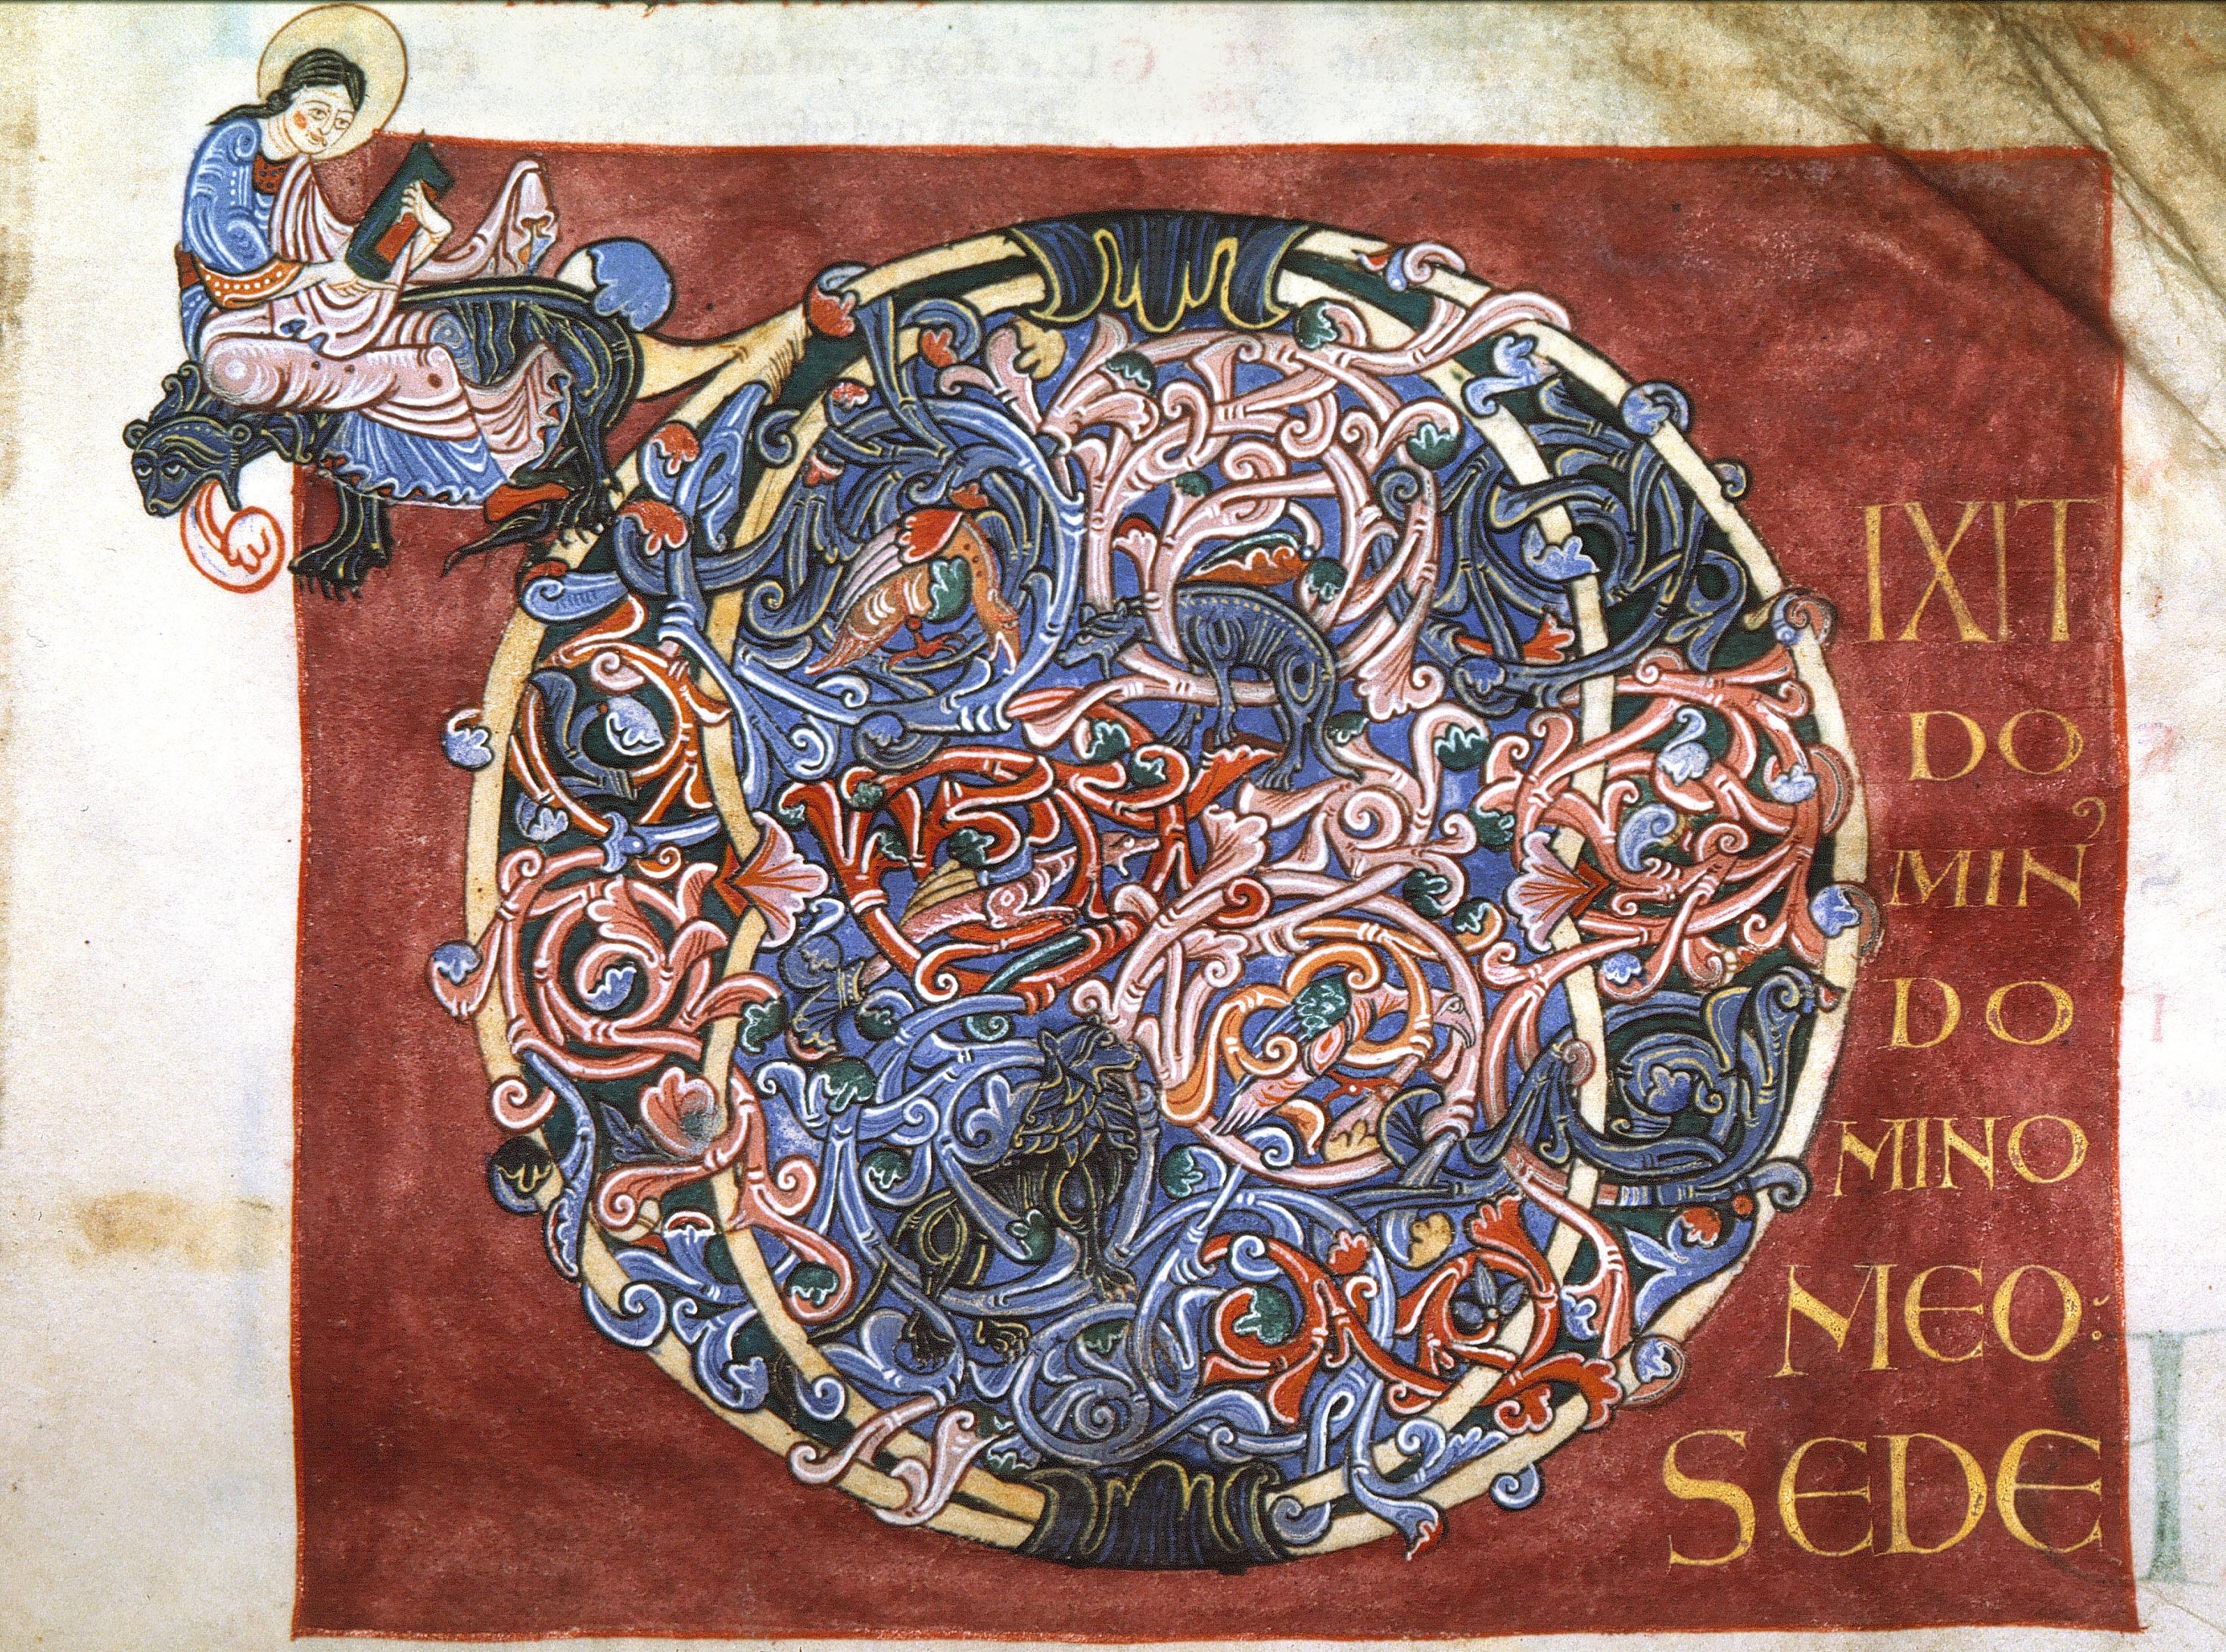 D
IXIT
DO
MIN᾿
DO
MINO
MEO:
SEDE